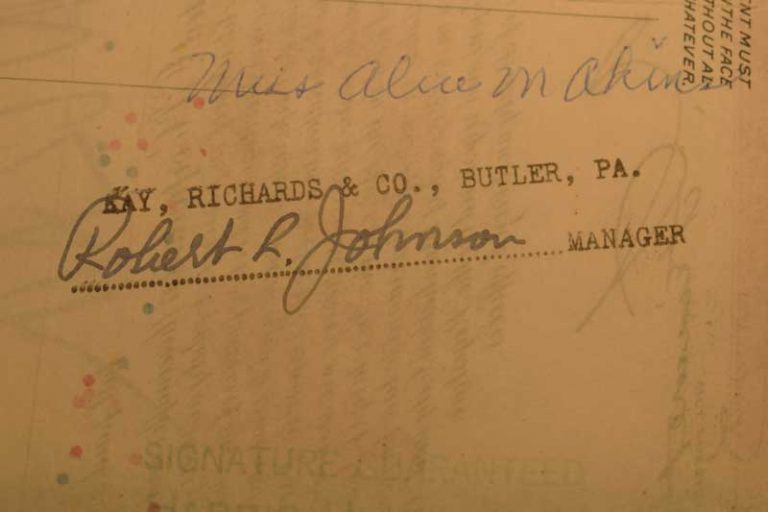 Miss Alice M Akins
KAY, RICHARDS & CO., BUTLER, PA.
Robert R. Johnson MANAGER
SIGNATURE GUARANTEED
NT MUST
THE FACE
THOUT AL
HATEVER.